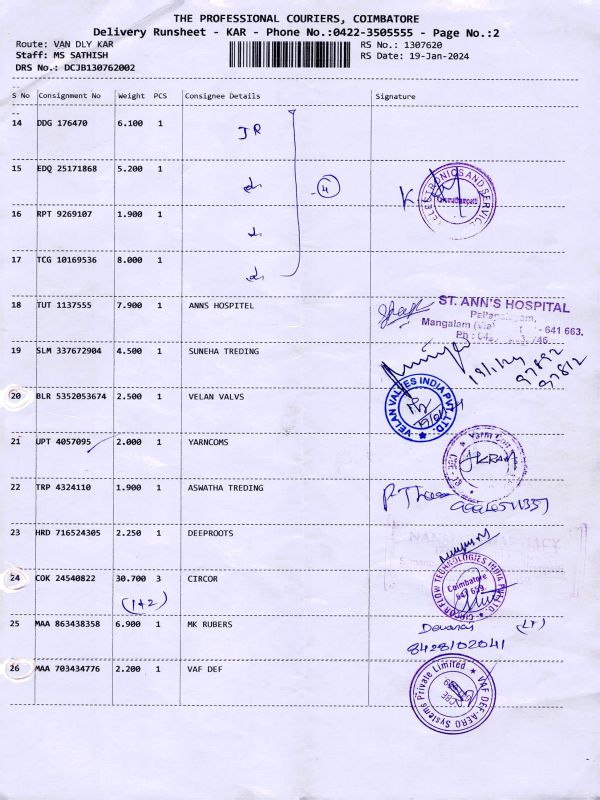 THE PROFESSIONAL COURIERS, COIMBATORE
Delivery Runsheet - KAR - Phone No.:0422-3505555 - Page No.:2
Route: VAN DLY KAR RS No.: 1307620
Staff: MS SATHISH RS Date: 19-Jan-2024
DRS No.: DCJB130762002
S No Consignment No Weight PCS Consignee Details Signature
14 DDG 176470 6.100 1
15 EDQ 25171868 5.200 1
4
ELECTRONICS AND SERVICE
16 RPT 9269107 1.900 1
17 TCG 10169536 8.000 1
18 TUT 1137555 7.900 1 ANNS HOSPITEL
ST. ANN'S HOSPITAL
Mangalam (via) - 641 663.
19 SLM 337672904 4.500 1 SUNEHA TREDING
19/1/24
97892
97812
20 BLR 5352053674 2.500 1 VELAN VALVS
VELAN VALVES INDIA PVT. LTD.
21 UPT 4057095 2.000 1 YARNCOMS
22 TRP 4324110 1.900 1 ASWATHA TREDING
23 HRD 716524305 2.250 1 DEEPROOTS
24 COK 24540822 30.700 3 CIRCOR
(1+2)
CIRCOR FLOW TECHNOLOGIES INDIA PVT LTD
Coimbatore
641 659.
25 MAA 863438358 6.900 1 MK RUBERS
Devaraj
8428102041
26 MAA 703434776 2.200 1 VAF DEF
VAF DEF-AERO Systems Private Limited
CBE